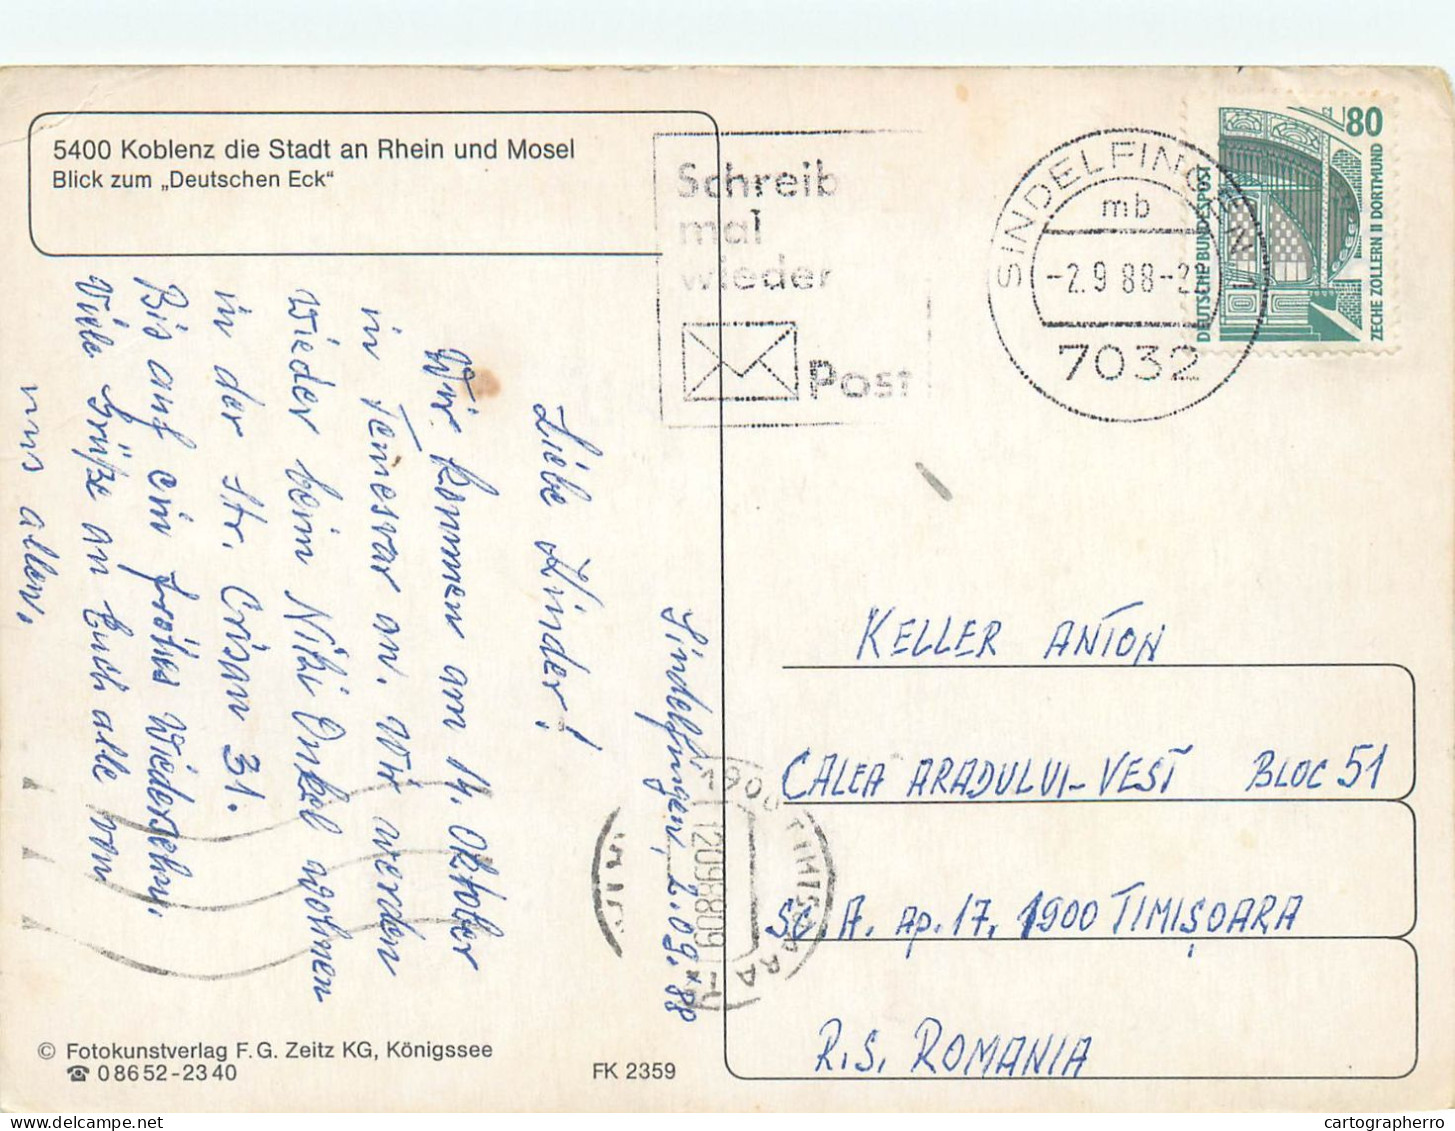 5400 Koblenz die Stadt an Rhein und Mosel
Blick zum „Deutschen Eck“
Schreib
mal
wieder
Post
SINDELFINGEN 1
mb
-2.9.88-2
7032
80
DEUTSCHE BUNDESPOST
ZECHE ZOLLERN II DORTMUND
Sindelfingen, 2.09.88
Liebe Kinder!
Wir kommen am 14. Oktober
in Temesvar an. Wir werden
wieder beim Niki Onkel wohnen
in der Str. Crisan 31.
Bis auf ein frohes Wiedersehn.
Viele Grüße an Euch alle von
uns allen.
1900 TIMISOARA
12098809
KELLER ANTON
CALEA ARADULUI-VEST BLOC 51
SC A. AP. 17. 1900 TIMIȘOARA
R.S. ROMANIA
© Fotokunstverlag F. G. Zeitz KG, Königssee
☎ 0 86 52 - 23 40
FK 2359
cartographerro